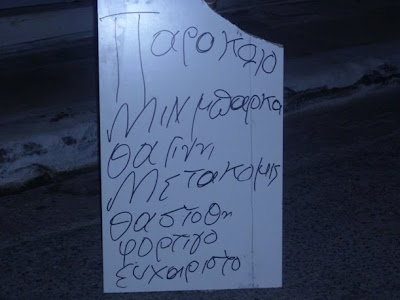 Παροκαλο
Μιν μπαρκα
θα Γινι
Μετακομις
θα στοθη
φορτιγο
ευχαιριστο